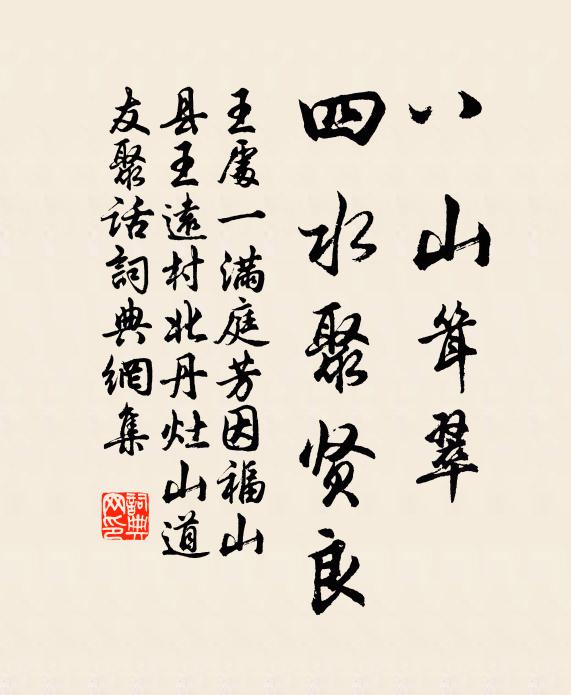 八山耸翠
四水聚贤良
王處一满庭芳因福山
县王遠村北丹灶山道
友聚话詞典網集
詞典
网印